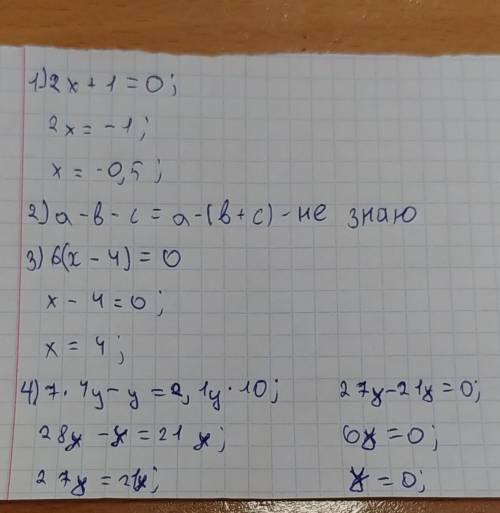 1) 2x + 1 = 0;
2x = -1;
x = -0,5;
2) a - b - c = a - (b + c) - не знаю
3) 6(x - 4) = 0
x - 4 = 0;
x = 4;
4) 7 · 4y - y = 2,1y · 10;
28y - y = 21y;
27y = 21y;
27y - 21y = 0;
6y = 0;
y = 0;